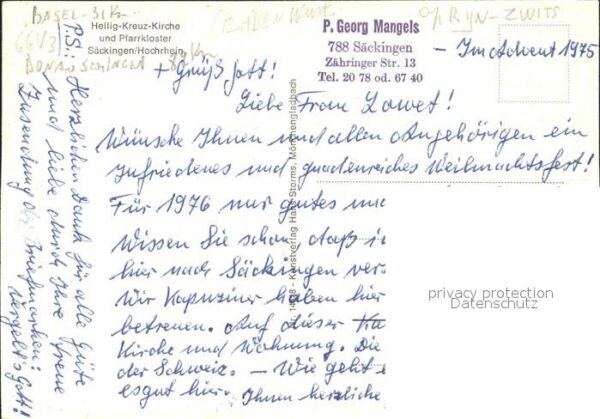 BASEL - 31 Km
Heilig-Kreuz-Kirche
und Pfarrkloster
Säckingen/Hochrhein
DONAUESCHINGEN
(BADEN
P. Georg Mangels
788 Säckingen
Zähringer Str. 13
Tel. 20 78 od. 67 40
RYN - ZWITS
- Im Advent 1975
+ Grüß Gott!
Liebe Frau Lowet!
Wünsche Ihnen und allen Angehörigen ein
zufriedenes und gnadenreiches Weihnachtsfest!
Für 1976 nur gutes und
Wissen Sie schon daß i
hier nach Säckingen ver
Wir Kapuziner haben hier
betreuen. Auf dieser
Kirche und Wohnung. Die
der Schweiz. - Wie geht e
es gut hier. Ihnen herzliche
P.S.: Herzlichen Dank für alle Güte
und Liebe durch Ihre treue
Zusendung der Briefmarken:
Vergelt's Gott!
Kunstverlag Hans Storms, Mönchengladbach
privacy protection
Datenschutz